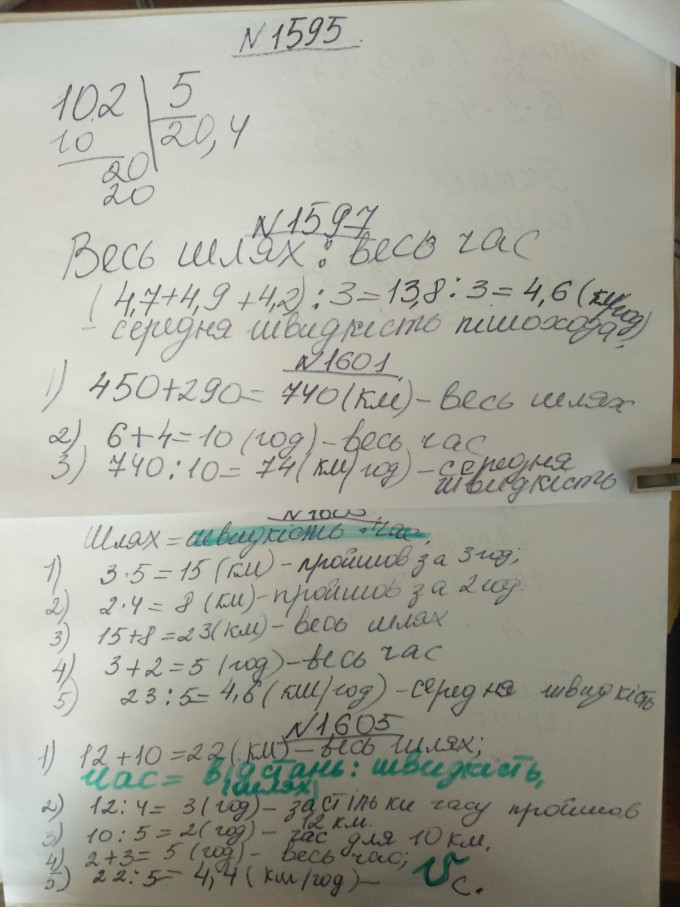 N1595
10.2 | 5
10 | 20,4
20
20
N1597
Весь шлях : весь час
(4,7+4,9+4,2) : 3 = 13,8 : 3 = 4,6 (км/год)
- середня швидкість пішохода;
N1601
1) 450+290= 740 (км) – весь шлях
2) 6+4=10 (год) – весь час
3) 740:10= 74 (км/год) – середня
швидкість
Шлях = швидкість · час.
1) 3·5=15 (км) – пройшов за 3 год;
2) 2·4= 8 (км) – пройшов за 2 год.
3) 15+8=23 (км) – весь шлях
4) 3+2=5 (год) – весь час
5) 23:5= 4,6 (км/год) – середня швидкість
N1605
1) 12+10=22 (км) – весь шлях;
Час = відстань : швидкість,
(шлях)
2) 12:4= 3 (год) – за стільки часу пройшов
12 км.
3) 10:5=2 (год) – час для 10 км.
4) 2+3= 5 (год) – весь час;
5) 22:5= 4,4 (км/год) – v с.